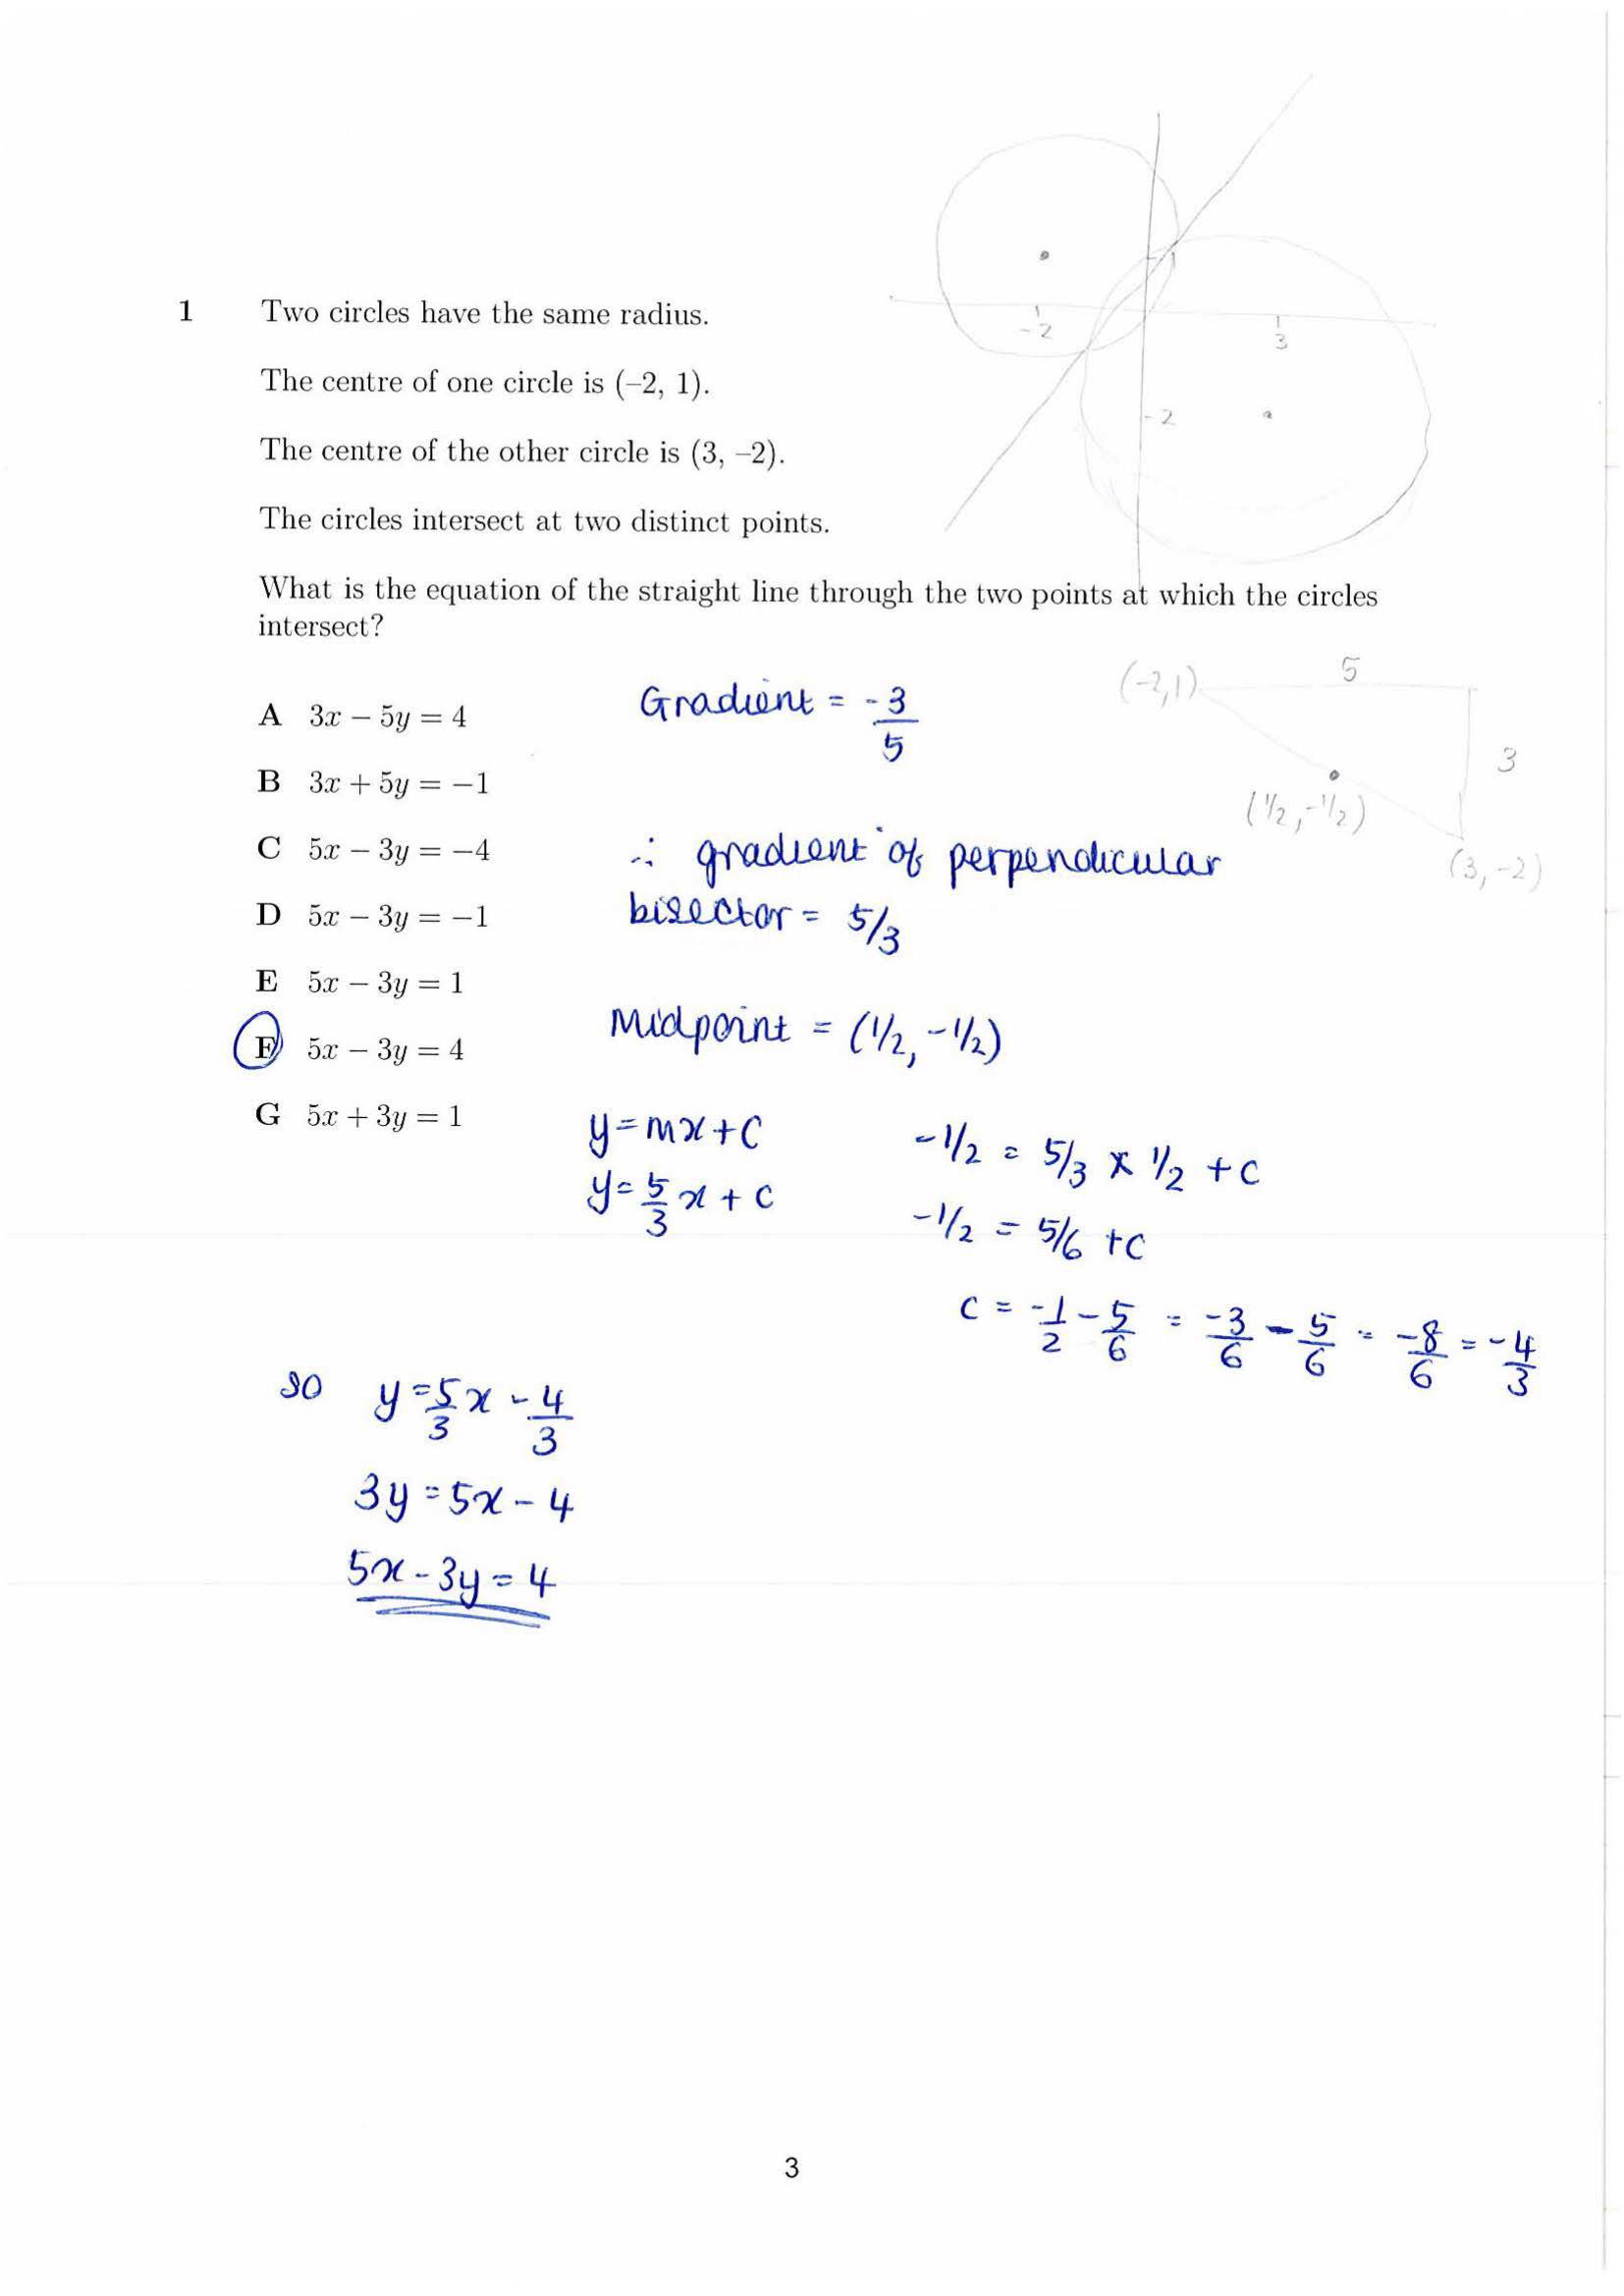 1
-2
3
-2
1 Two circles have the same radius.
The centre of one circle is (–2, 1).
The centre of the other circle is (3, –2).
The circles intersect at two distinct points.
What is the equation of the straight line through the two points at which the circles
intersect?
(-2,1)
5
3
(1/2, -1/2)
(3, -2)
A 3x − 5y = 4
B 3x + 5y = −1
C 5x − 3y = −4
D 5x − 3y = −1
E 5x − 3y = 1
F 5x − 3y = 4
G 5x + 3y = 1
Gradient = -3/5
∴ gradient of perpendicular
bisector = 5/3
Midpoint = (1/2, -1/2)
y = mx + c
y = 5/3 x + c
-1/2 = 5/3 × 1/2 + c
-1/2 = 5/6 + c
c = -1/2 - 5/6 = -3/6 - 5/6 = -8/6 = -4/3
so y = 5/3 x - 4/3
3y = 5x - 4
5x - 3y = 4
3